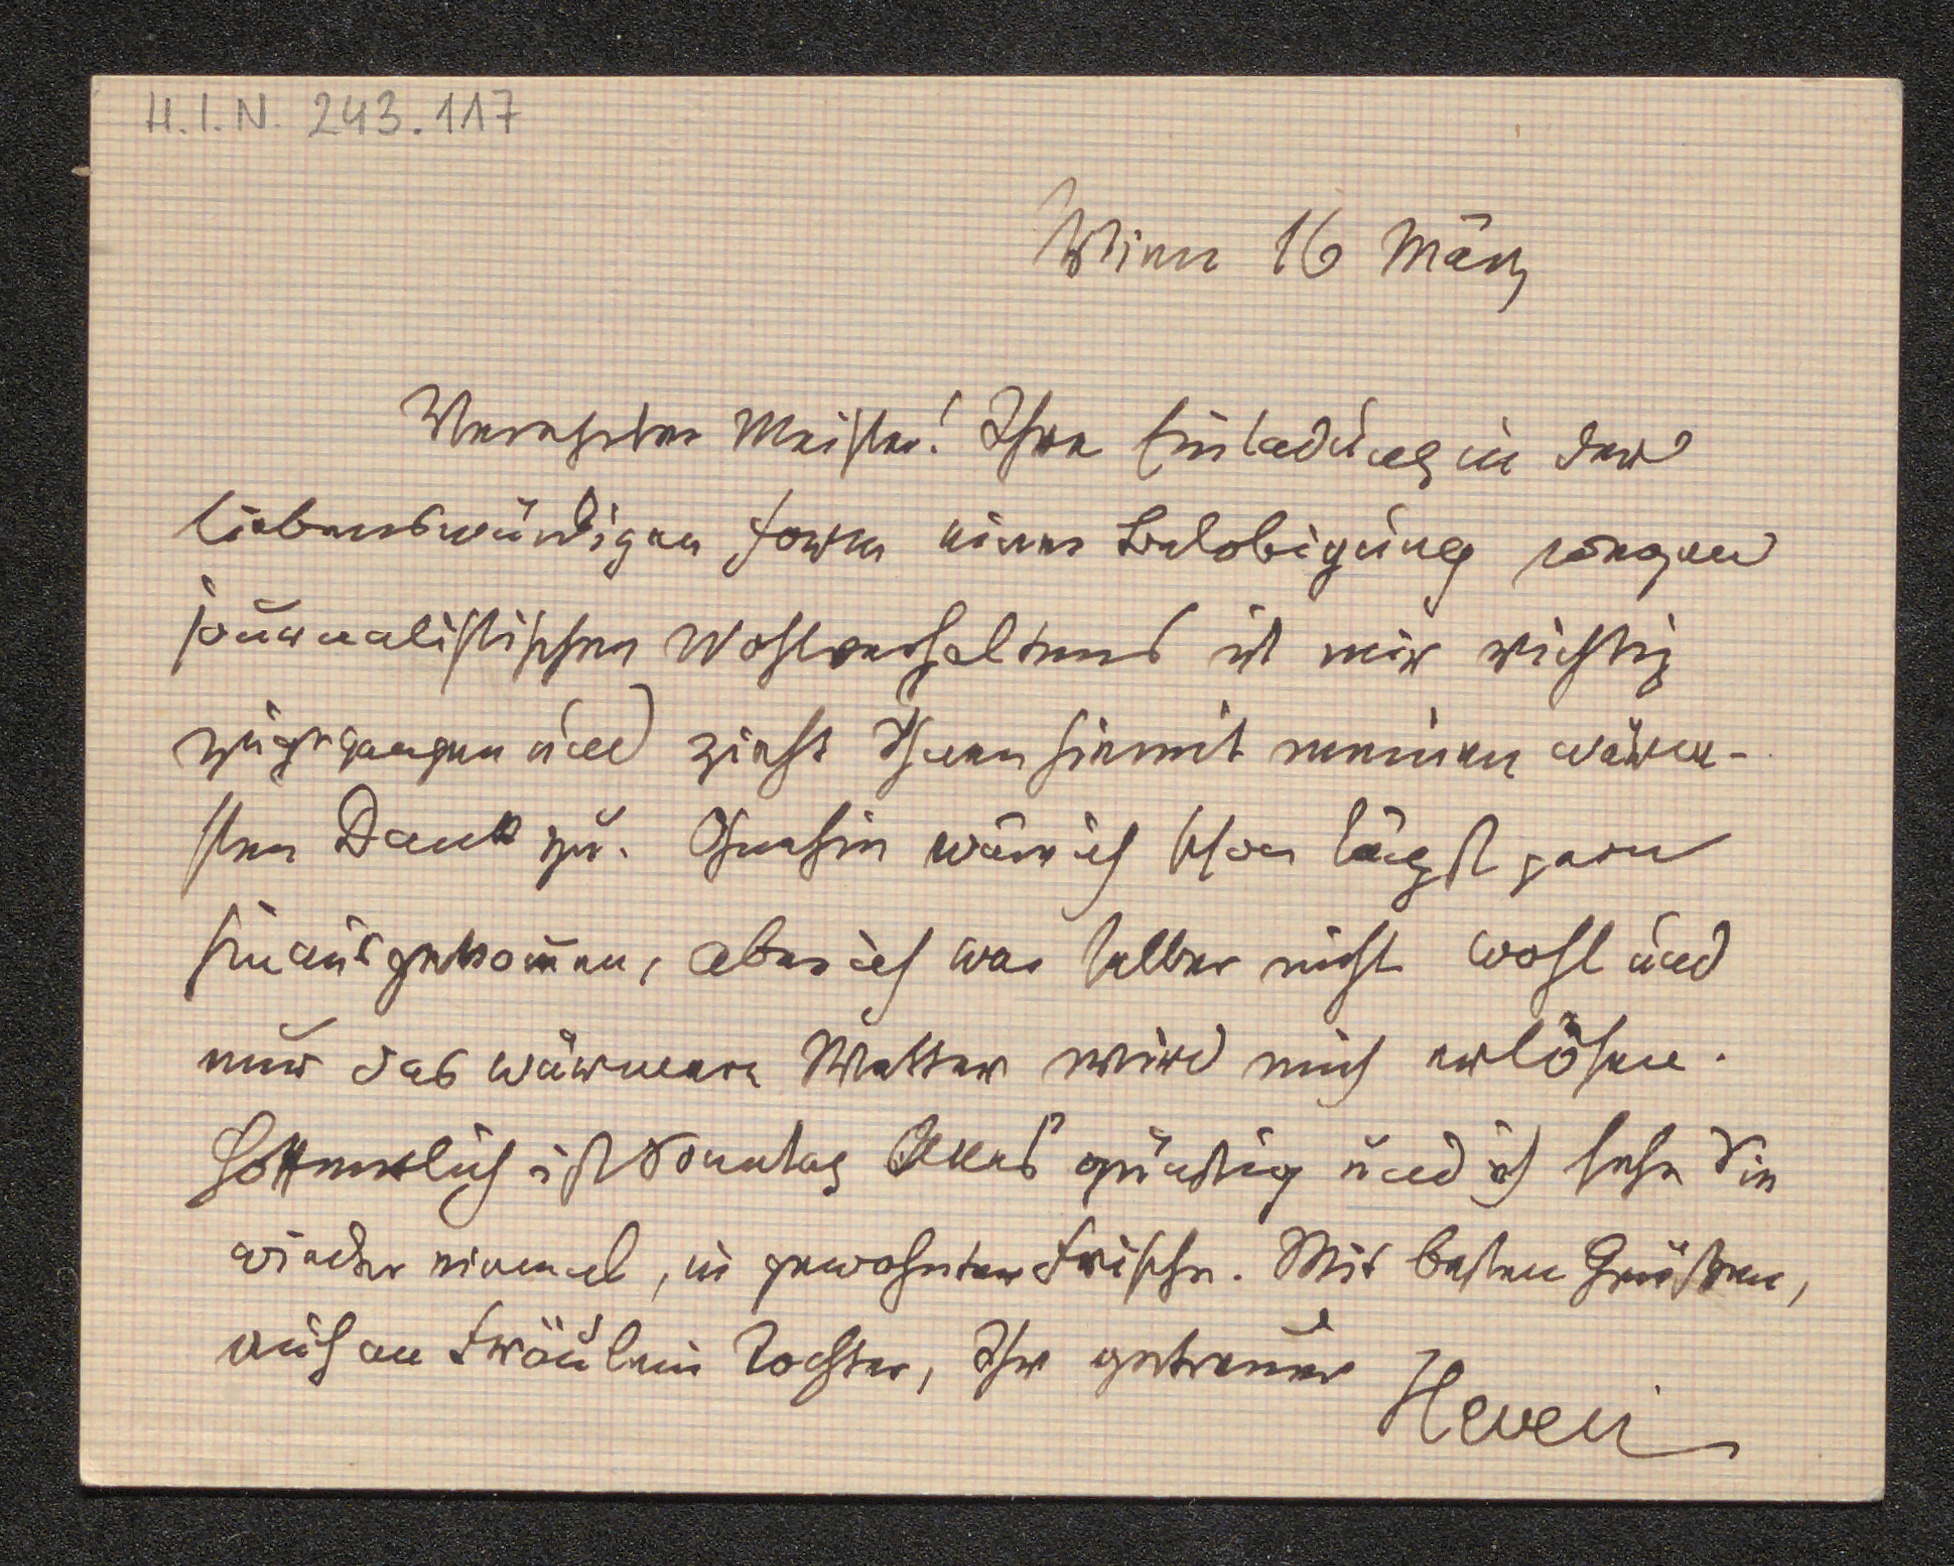 H.I.N. 243.117
Wien 16 März
Verehrter Meister! Ihre Einladung in der
liebenswürdigen Form einer Belobigung wegen
journalistischen Wohlverhaltens ist mir richtig
zugegangen und zieht Ihnen hiemit meinen wärm-
sten Dank zu. Ohnehin wäre ich schon längst gern
hinausgekom̄en, aber ich war selber nicht wohl und
nur das wärmere Wetter wird mich erlösen.
Hoffentlich ist Sonntag Alles günstig und ich sehe Sie
wieder einmal, in gewohnter Frische. Mit besten Grüßen,
auch an Fräulein Tochter, Ihr getreuer
Hevesi